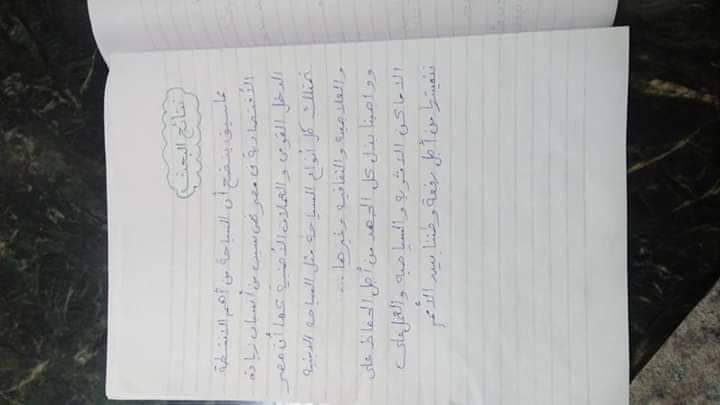 نتائج البحث
مما سبق يتضح أن السياحة من أهم الانشطة
الأقتصادية فى مصر فهى سبب من أسباب زيادة
الدخل القومى والعملات الأجنبية كما أن مصر
تمتلك كل أنواع السياحة مثل السياحه الدينيه
والعلاجيه والثقافيه وغيرها ...
وواجبنا بذل كل الجهد من أجل الحفاظ على
الاماكن الاثريه والسياحيه والعمل على
تنميتها من أجل رفعة وطننا بين الأمم